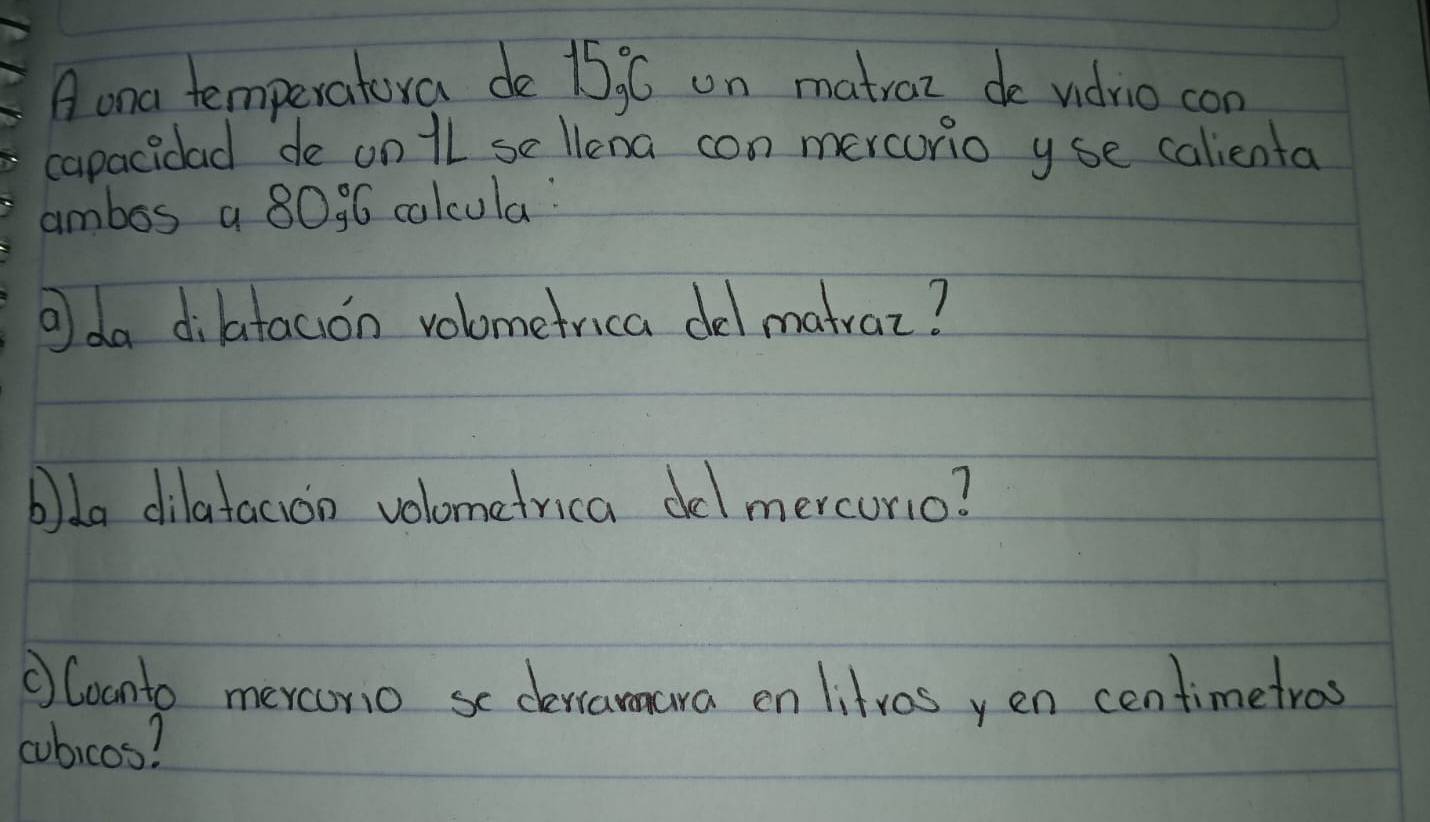 A una temperatura de 15°C un matraz de vidrio con
capacidad de un 1L se llena con mercurio y se calienta
ambos a 80°C calcula:
a) La dilatación volumetrica del matraz?
b) La dilatación volumetrica del mercurio?
c) Cuanto mercurio se derramara en litros y en centimetros
cubicos?